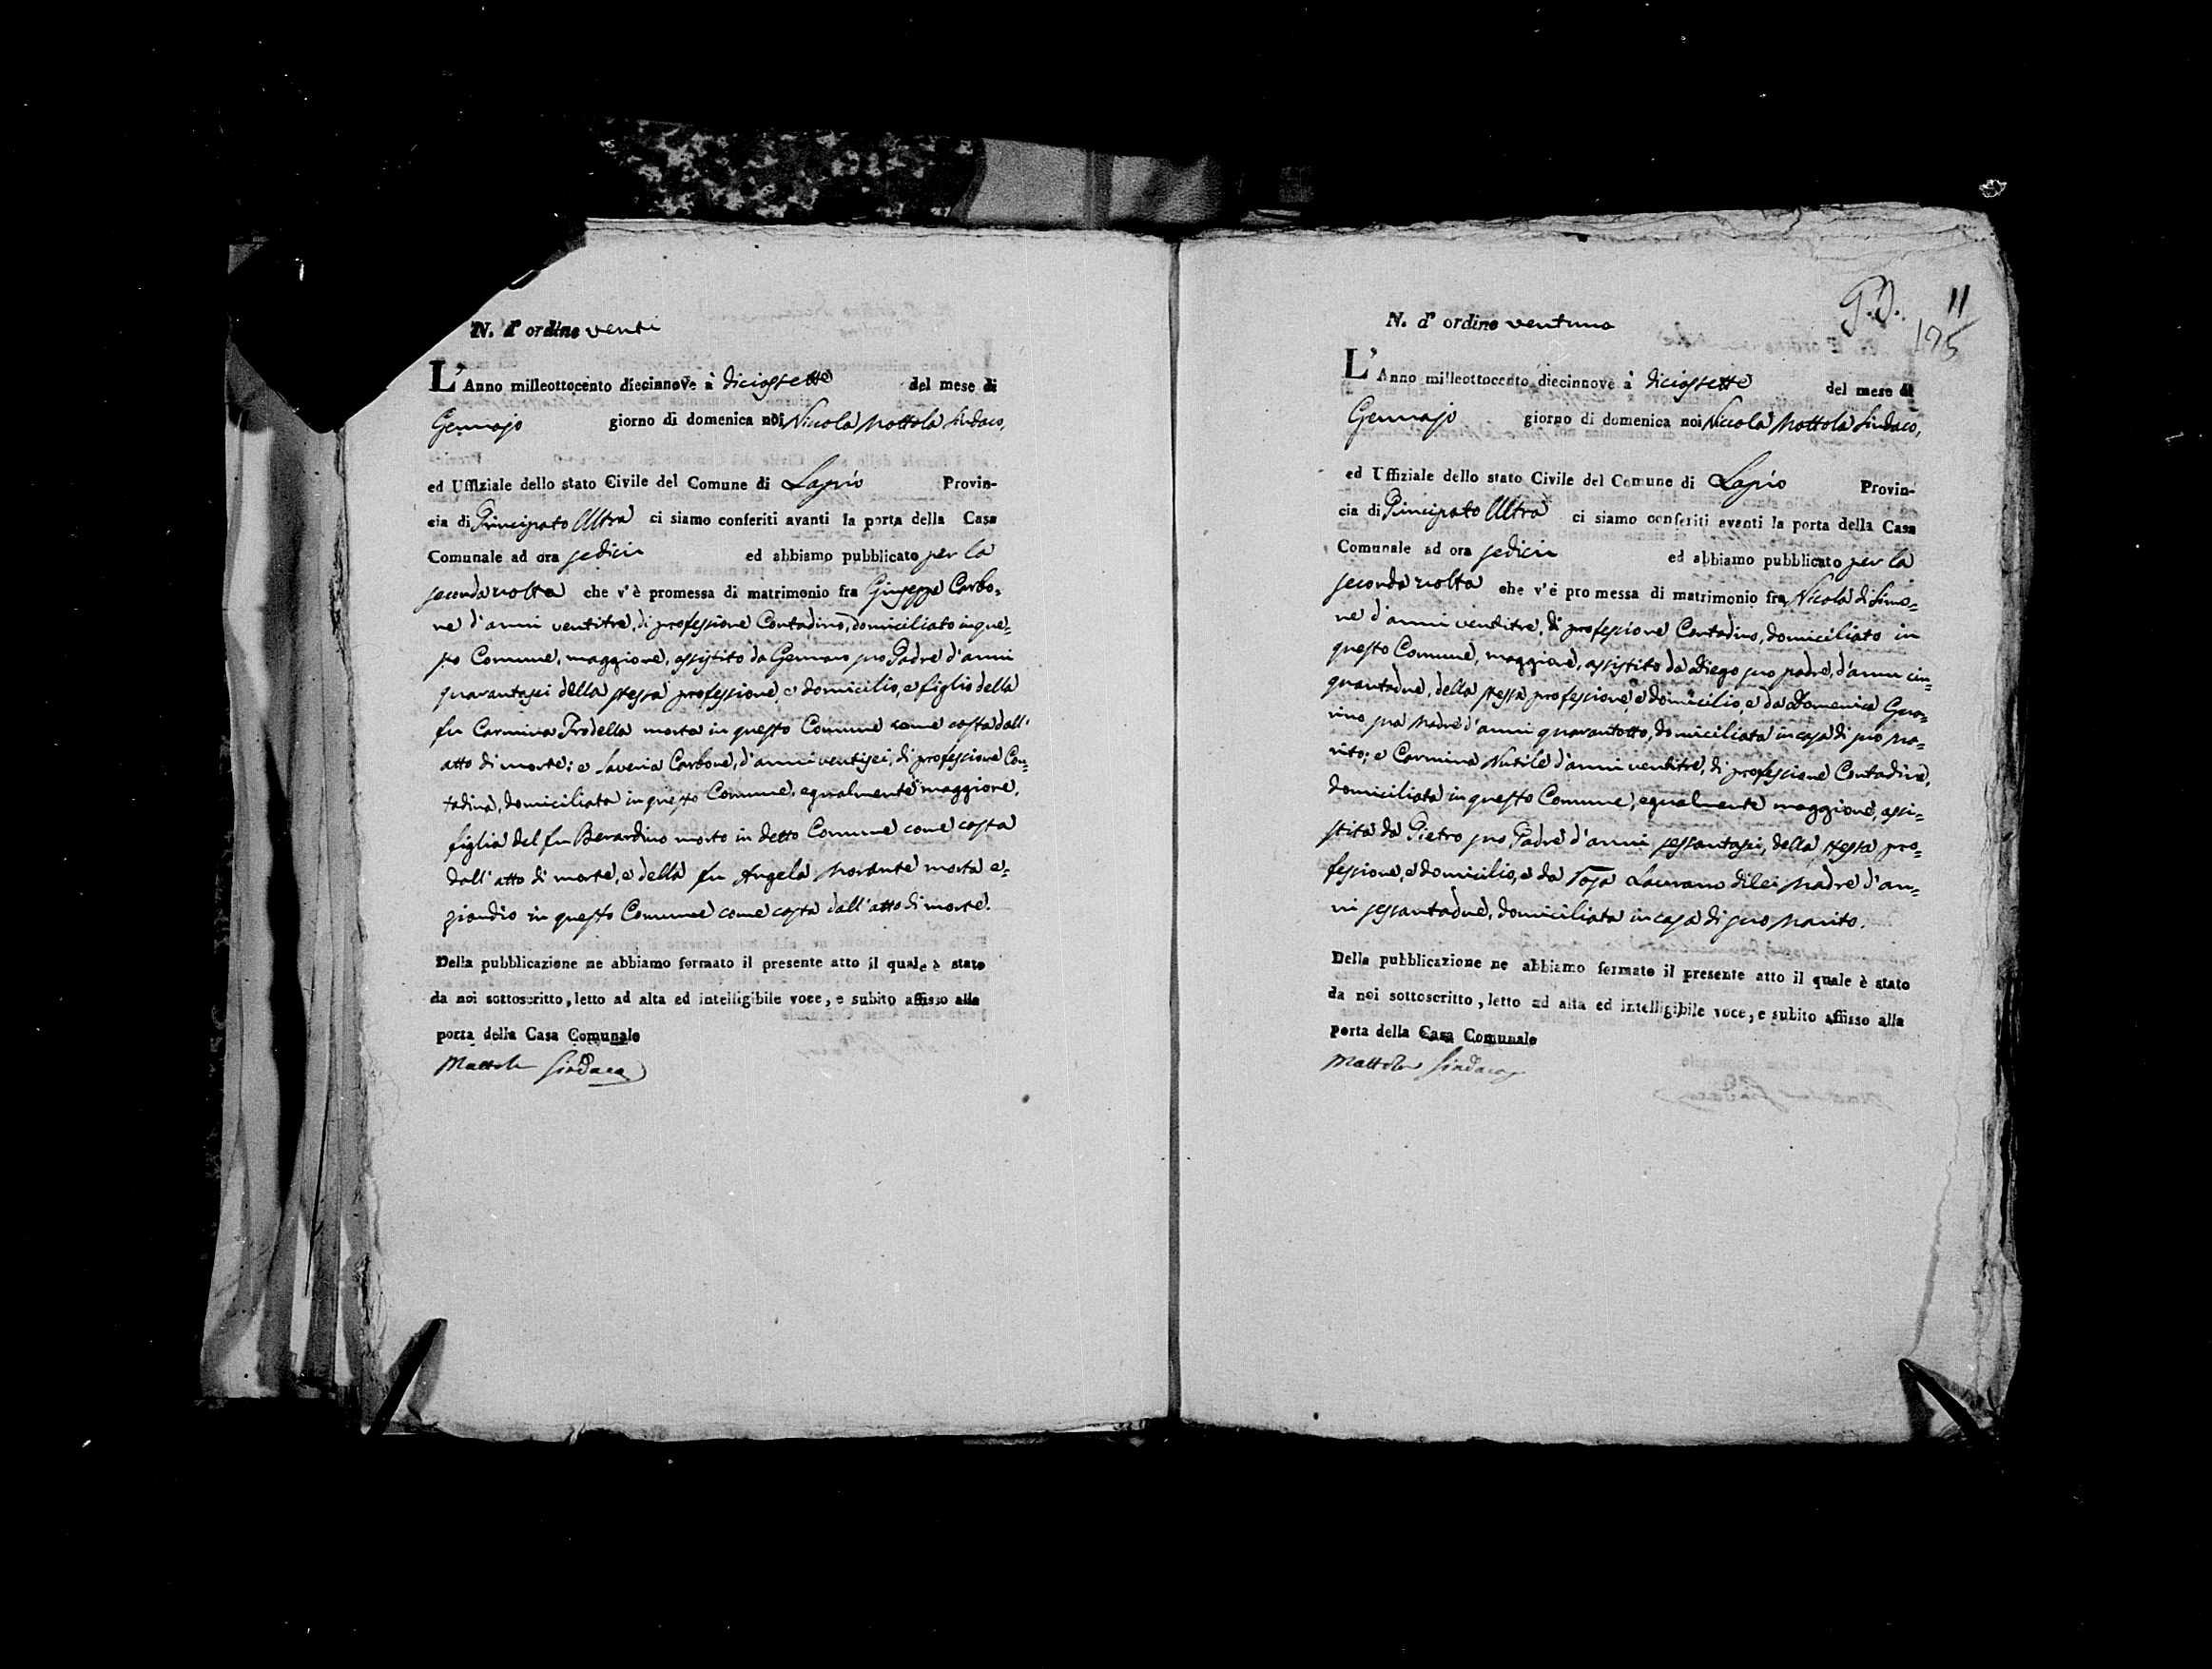 N. d'ordine venti
L'Anno milleottocento diecinnove à diciassette del mese di
Gennajo giorno di domenica noi Niccola Mottola Sindaco,
ed Uffiziale dello stato Civile del Comune di Lapio Provin-
cia di Principato Ultra ci siamo conferiti avanti la porta della Casa
Comunale ad ora sedici ed abbiamo pubblicato per la
seconda volta che v'è promessa di matrimonio fra Giuseppe Carbo=
ne d'anni ventitre, di professione Contadino, domiciliato in que=
sto Comune, maggiore, assistito da Gennaro suo Padre d'anni
quarantasei della stessa professione, e domicilio, e figlio della
fu Carmina Trodella morta in questo Comune come costa dall'
atto di morte; e Saveria Carbone, d'anni ventisei, di professione Con=
tadina, domiciliata in questo Comune, egualmente maggiore,
figlia del fu Berardino morto in detto Comune come costa
dall'atto di morte, e della fu Angela Morante morta e=
ziandio in questo Comune come costa dall'atto di morte.
Della pubblicazione ne abbiamo formato il presente atto il quale è stato
da noi sottoscritto, letto ad alta ed intelligibile voce, e subito affisso alla
porta della Casa Comunale
Mottola Sindaco
11
175
N. d'ordine ventuno
L'Anno milleottocento diecinnove à diciassette del mese di
Gennajo giorno di domenica noi Niccola Mottola Sindaco,
ed Uffiziale dello stato Civile del Comune di Lapio Provin-
cia di Principato Ultra ci siamo conferiti avanti la porta della Casa
Comunale ad ora sedici ed abbiamo pubblicato per la
seconda volta che v'è promessa di matrimonio fra Nicola di Simo=
ne d'anni ventitre, di professione Contadino, domiciliato in
questo Comune, maggiore, assistito da Diego suo padre, d'anni cin=
quantadue, della stessa professione, e domicilio, e da Domenica Gua=
rino sua Madre d'anni quarantotto, domiciliata in casa di suo Ma=
rito; e Carmina Nutile d'anni ventitre, di professione Contadina,
domiciliata in questo Comune, egualmente maggiore, assi=
stita da Pietro suo Padre d'anni sessantasei, della stessa pro=
fessione, e domicilio, e da Rosa Laurano di lei Madre d'an=
ni sessantadue, domiciliata in casa di suo Marito.
Della pubblicazione ne abbiamo formato il presente atto il quale è stato
da noi sottoscritto, letto ad alta ed intelligibile voce, e subito affisso alla
porta della Casa Comunale
Mottola Sindaco